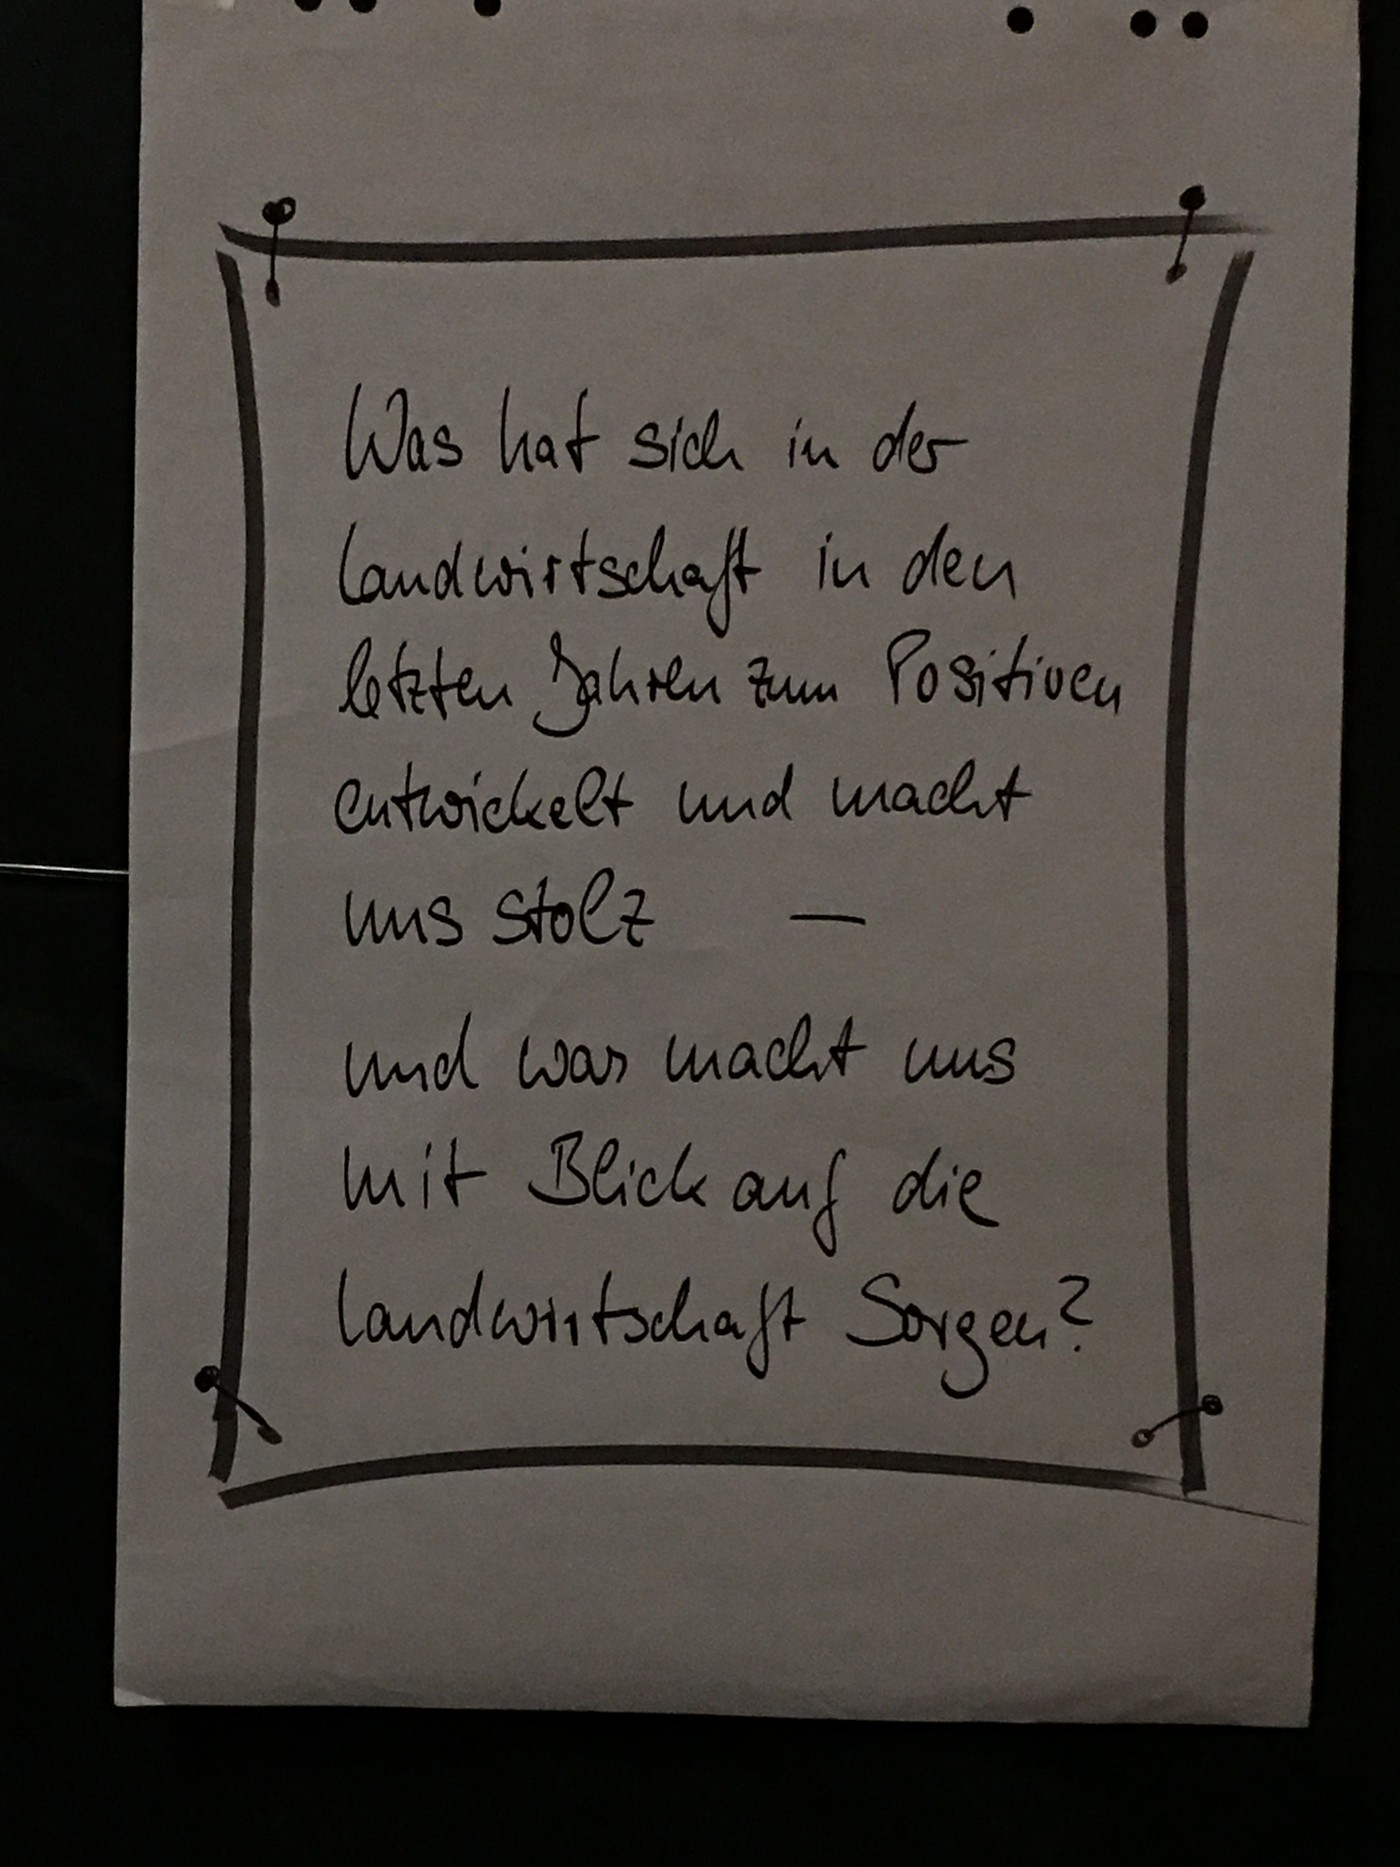 Was hat sich in der
Landwirtschaft in den
letzten Jahren zum Positiven
entwickelt und macht
uns stolz —
und was macht uns
mit Blick auf die
Landwirtschaft Sorgen?